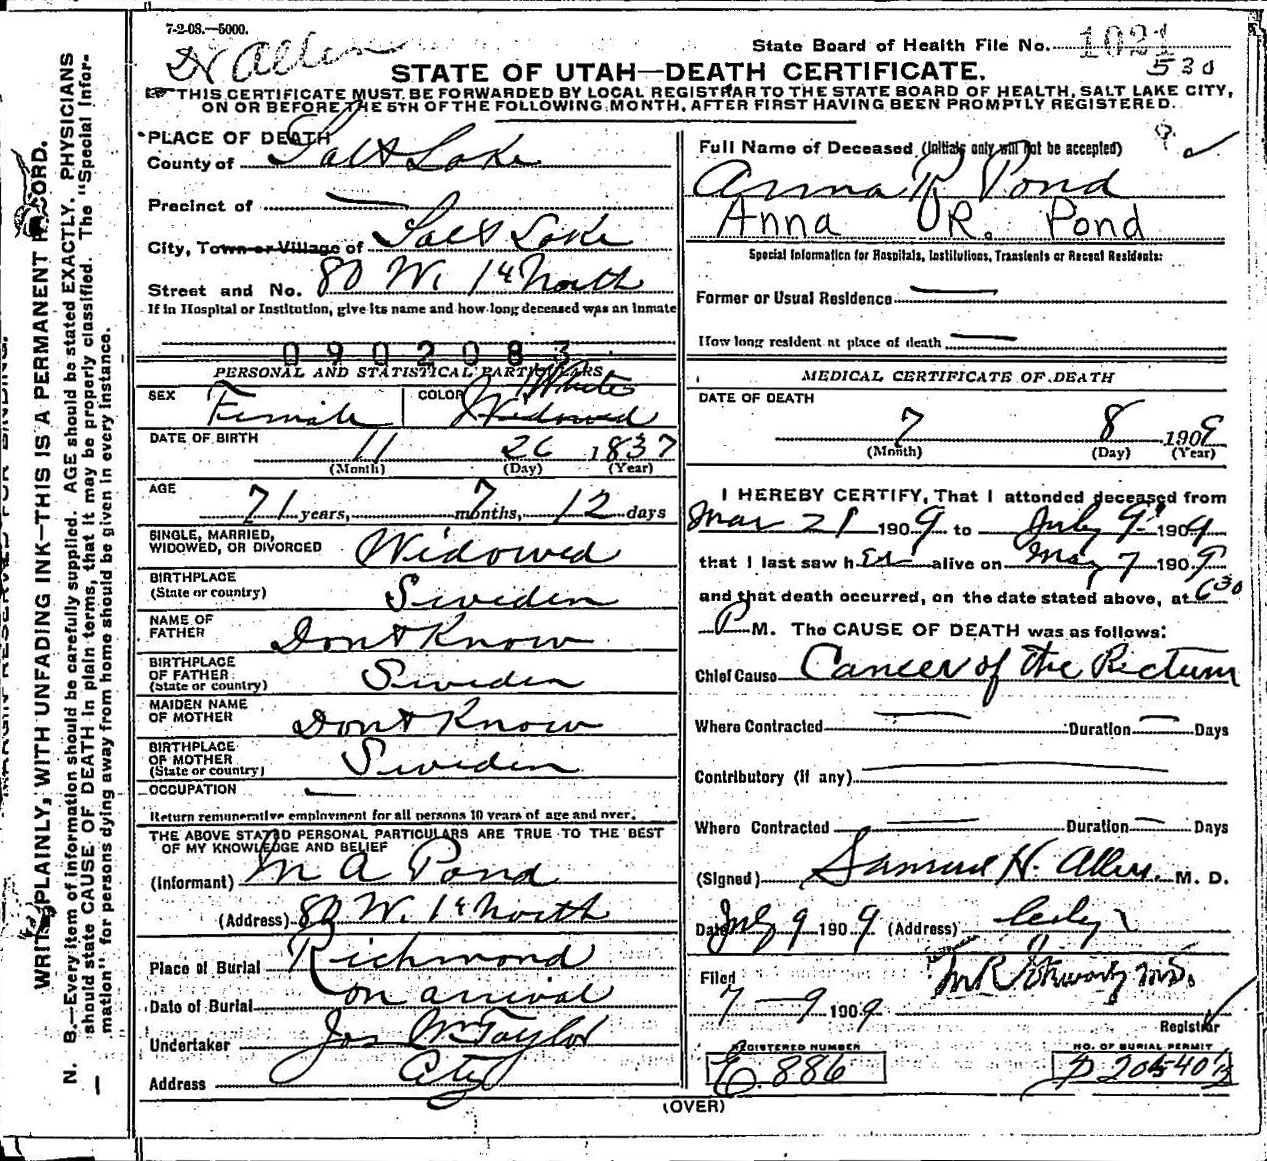 7-2-08.—5000.
Dr Allen
State Board of Health File No. 1021
530
STATE OF UTAH—DEATH CERTIFICATE.
THIS CERTIFICATE MUST BE FORWARDED BY LOCAL REGISTRAR TO THE STATE BOARD OF HEALTH, SALT LAKE CITY,
ON OR BEFORE THE 5TH OF THE FOLLOWING MONTH, AFTER FIRST HAVING BEEN PROMPTLY REGISTERED.
WRITE PLAINLY, WITH UNFADING INK—THIS IS A PERMANENT RECORD.
N. B.—Every item of information should be carefully supplied. AGE should be stated EXACTLY. PHYSICIANS
should state CAUSE OF DEATH in plain terms, that it may be properly classified. The "Special Infor-
mation" for persons dying away from home should be given in every instance.
PLACE OF DEATH
County of Salt Lake
Precinct of —
City, Town or Village of Salt Lake
Street and No. 80 W. 1st North
If in Hospital or Institution, give its name and how long deceased was an inmate
0902083
PERSONAL AND STATISTICAL PARTICULARS
SEX Female COLOR White
Widowed
DATE OF BIRTH 11 26 1837
(Month) (Day) (Year)
AGE 71 years, 7 months, 12 days
SINGLE, MARRIED,
WIDOWED, OR DIVORCED Widowed
BIRTHPLACE
(State or country) Sweden
NAME OF
FATHER Dont Know
BIRTHPLACE
OF FATHER
(State or country) Sweden
MAIDEN NAME
OF MOTHER Dont Know
BIRTHPLACE
OF MOTHER
(State or country) Sweden
OCCUPATION —
Return remunerative employment for all persons 10 years of age and over.
THE ABOVE STATED PERSONAL PARTICULARS ARE TRUE TO THE BEST
OF MY KNOWLEDGE AND BELIEF
(Informant) M A Pond
(Address) 80 W. 1st North
Place of Burial Richmond
Date of Burial on arrival
Undertaker Jos Wm Taylor
Address City
Full Name of Deceased (Initials only will not be accepted) ?
Anna R Pond
Anna R. Pond
Special Information for Hospitals, Institutions, Transients or Recent Residents:
Former or Usual Residence —
How long resident at place of death —
MEDICAL CERTIFICATE OF DEATH
DATE OF DEATH
7 8 1909
(Month) (Day) (Year)
I HEREBY CERTIFY, That I attended deceased from
Mar 21 1909 to July 9" 1909
that I last saw her alive on May 7 1909
and that death occurred, on the date stated above, at 630
P M. The CAUSE OF DEATH was as follows:
Chief Cause Cancer of the Rectum
Where Contracted — Duration — Days
Contributory (if any) —
Where Contracted — Duration — Days
(Signed) Samuel H. Allen M. D.
Date July 9 1909 (Address) City
Filed
7—9 1909
Registrar
REGISTERED NUMBER
E. 886
NO. OF BURIAL PERMIT
(OVER)